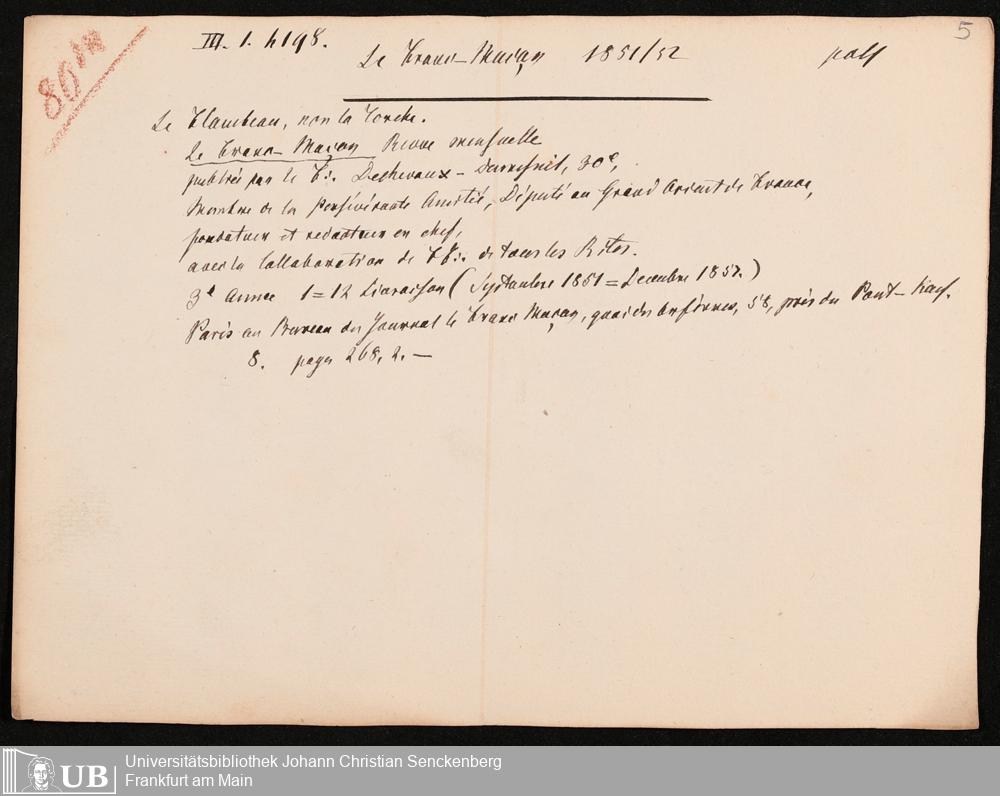 5
III. 1. h 198.
Le Franc-Maçon 1851/52
Le Flambeau, non la Torche.
Le Franc-Maçon Revue mensuelle
publiée par le F∴ Dechevaux-Dumesnil, 30e,
Membre de la Persévérante Amitié, Député au Grand Orient de France,
fondateur et rédacteur en chef,
avec la Collaboration de FF∴ de tous les Rites.
3e Année 1=12 Livraison (Septembre 1851=Decembre 1852.)
Paris au Bureau du Journal le Franc Maçon, quai des Orfèvres, 58, près du Pont-Neuf.
8. pages 268, 2. —
Universitätsbibliothek Johann Christian Senckenberg
UB Frankfurt am Main